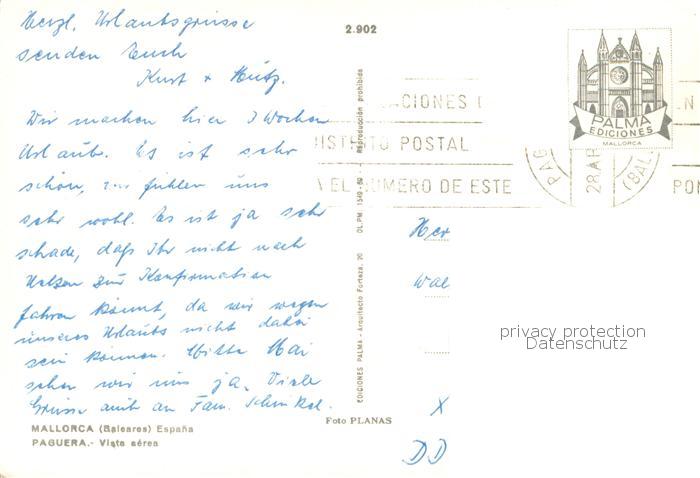 Herzl. Urlaubsgrüsse
senden Euch
Kurt +
Wir machen hier 3 Wochen
Urlaub. Es ist sehr
schön, wir fühlen uns
sehr wohl. Es ist ja sehr
schade, daß Ihr nicht nach
zur Konfirmation
fahren könnt, da wir wegen
unseres Urlaubs nicht dabei
sein können. Mitte Mai
sehen wir uns ja. Viele
Grüsse auch an Fam.
MALLORCA (Baleares) España
PAGUERA.- Vista aérea
2.902
EDICIONES PALMA - Arquitecto Forteza, 20 DL.PM. 1549-62 - Reproducción prohibida
Foto PLANAS
PALMA
EDICIONES
MALLORCA
ACIONES
POSTAL
EL NUMERO DE ESTE
PAG
28 AB
(BAL.
N
PO
Her
Wal
X
DD
privacy protection
Datenschutz